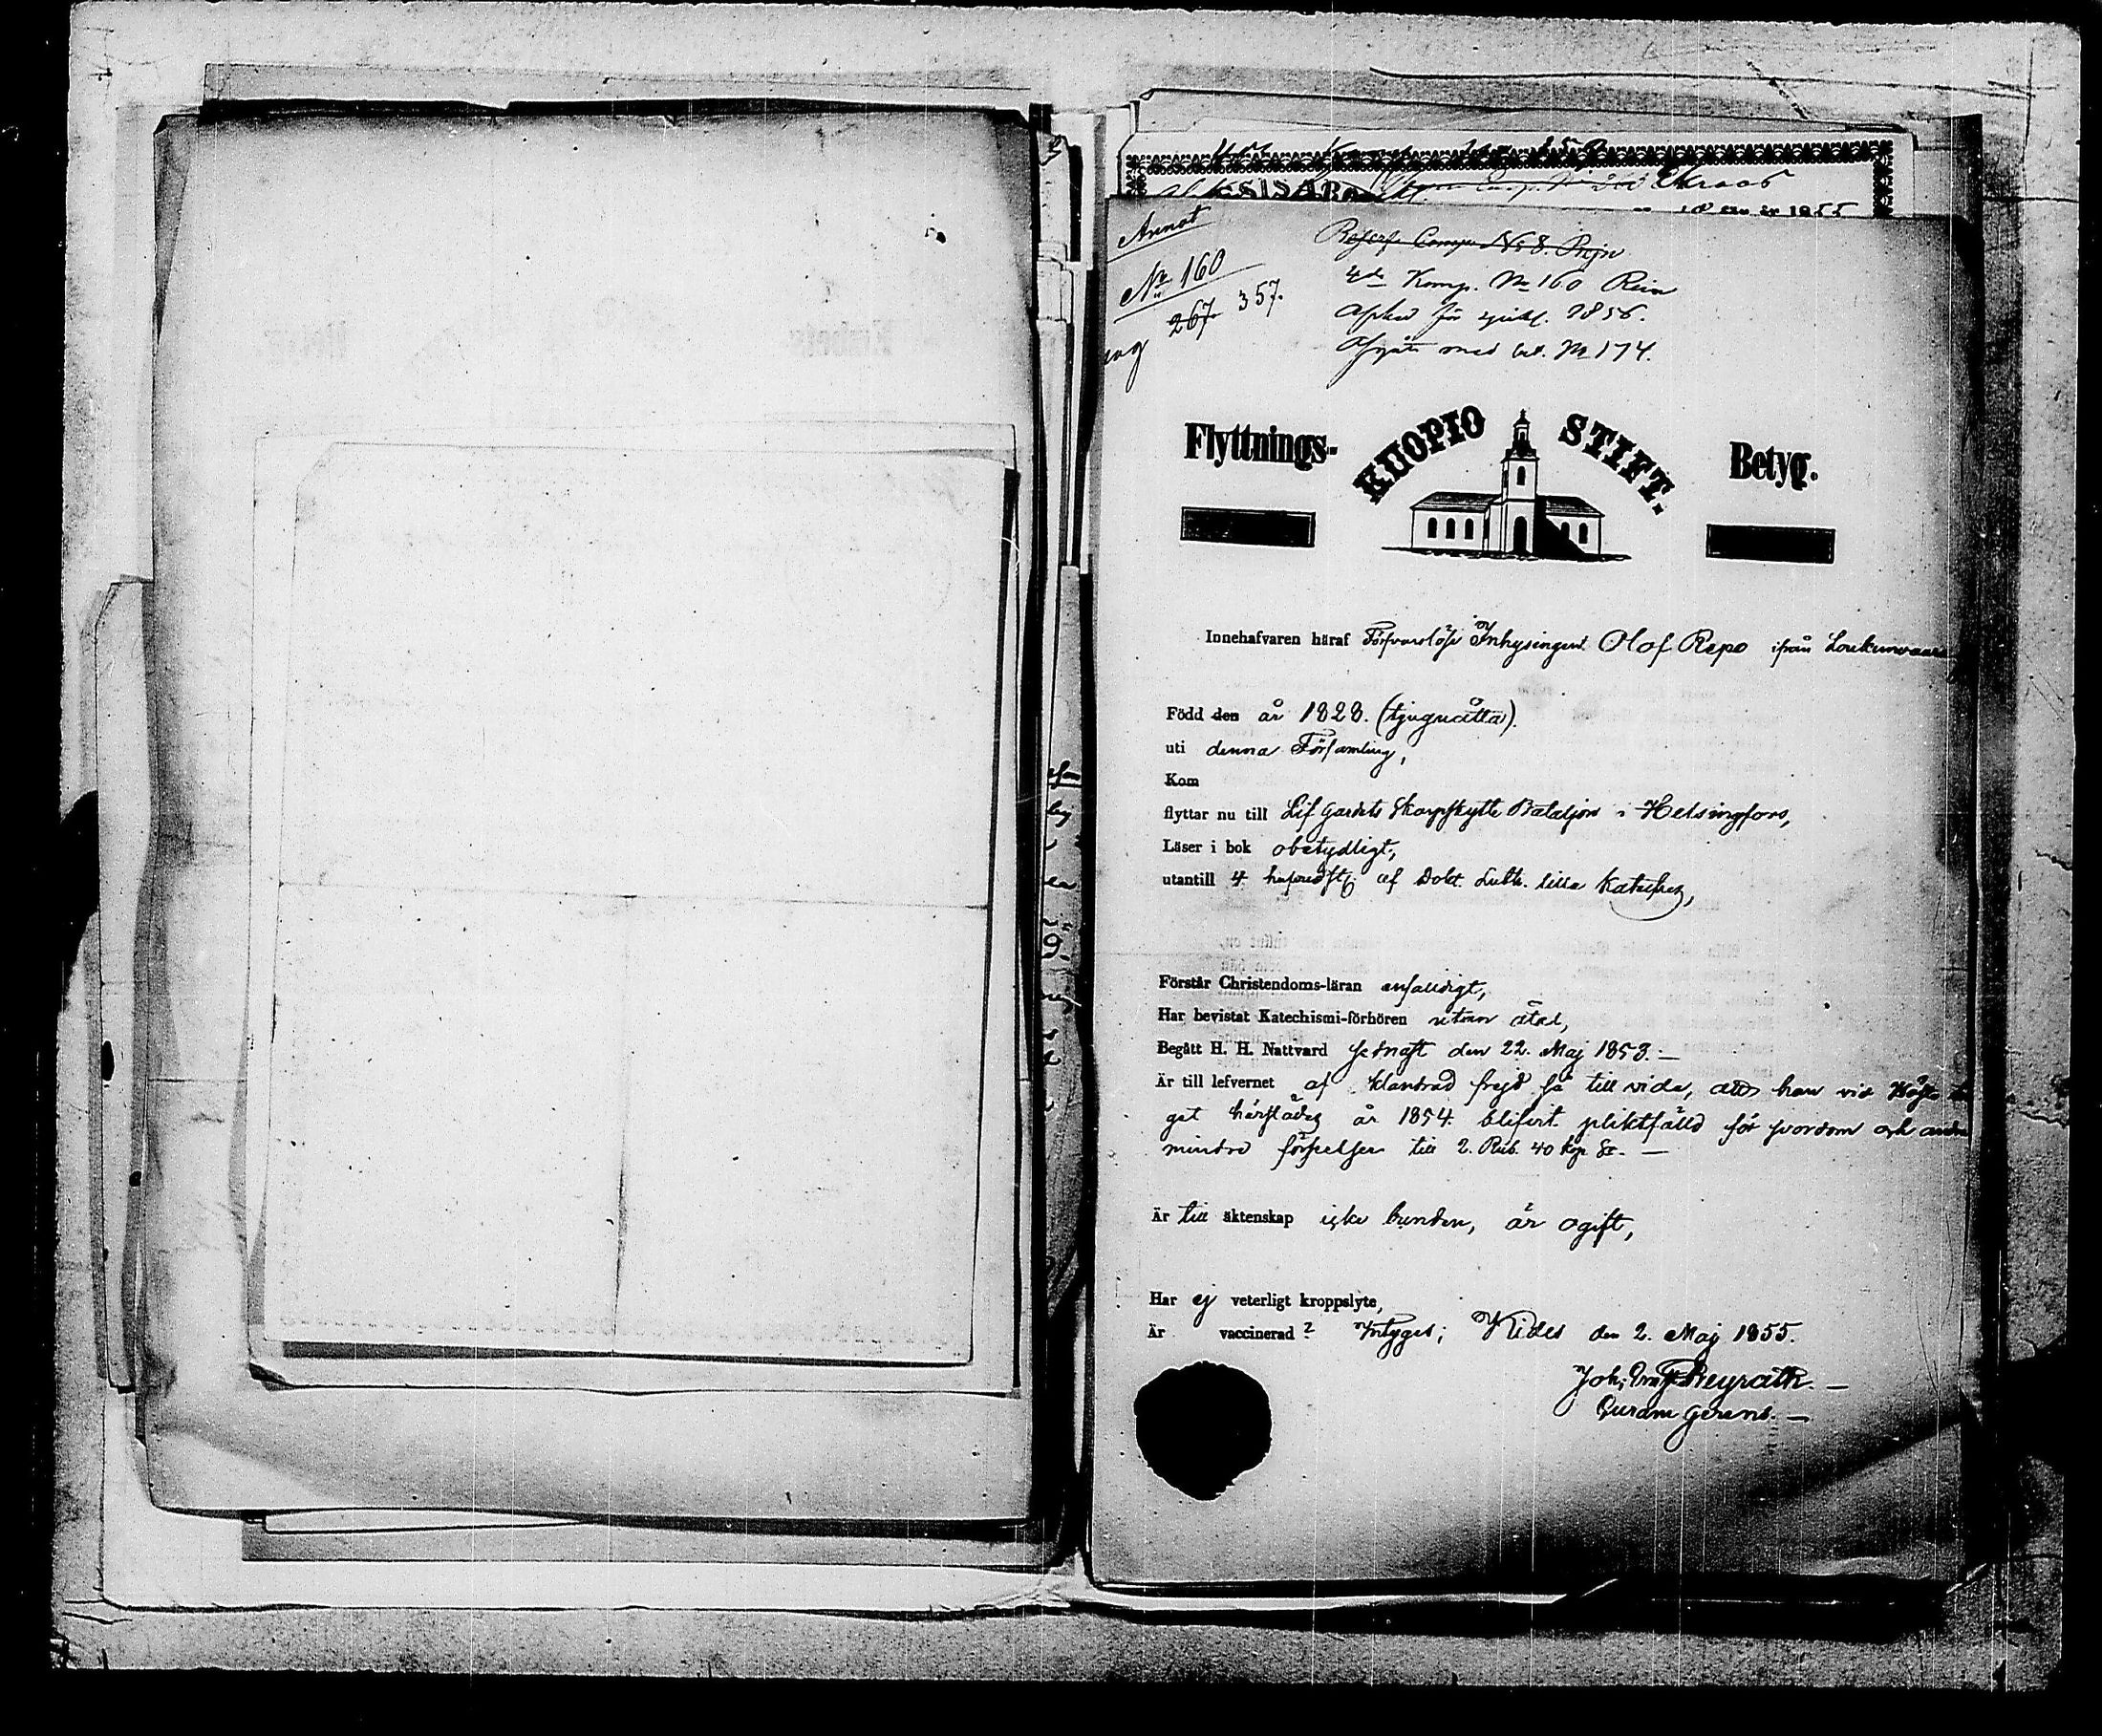 Annot
No 160
267 357.
Reserf Comp. No 8. Rejn
4de Komp. No 160 Rein
Afsked för sjukl. 1856.
med bet. No 174.
Flyttnings-
KUOPIO STIFT.
Betyg.
Innehafvaren häraf Försvarslöse Inhysingen Olof Repo ifrån
Född den år 1828. (tjuguåtta).
uti denna Församling,
Kom
flyttar nu till Lif Gardets Skarpskytte Bataljon i Helsingfors,
Läser i bok obetydligt,
utantill 4 hufvudst. af Dokt. Luth. lilla Kateches,
Förstår Christendoms-läran enfaldigt,
Har bevistat Katechismi-förhören utan åtal,
Begått H. H. Nattvard sednast den 22. Maj 1853. —
Är till lefvernet af klandrad frejd så till vida, att han vid
get härstädes år 1854. blifvit pliktfälld för svordom och
mindre förseelser till 2. Rub. 40 kop. Sr. —
Är till äktenskap icke bunden, är ogift,
Har ej veterligt kroppslyte,
Är vaccinerad? Intygas; Kides den 2. Maj 1855.
Joh. Fr. Beyrath. —
Curam gerens. —